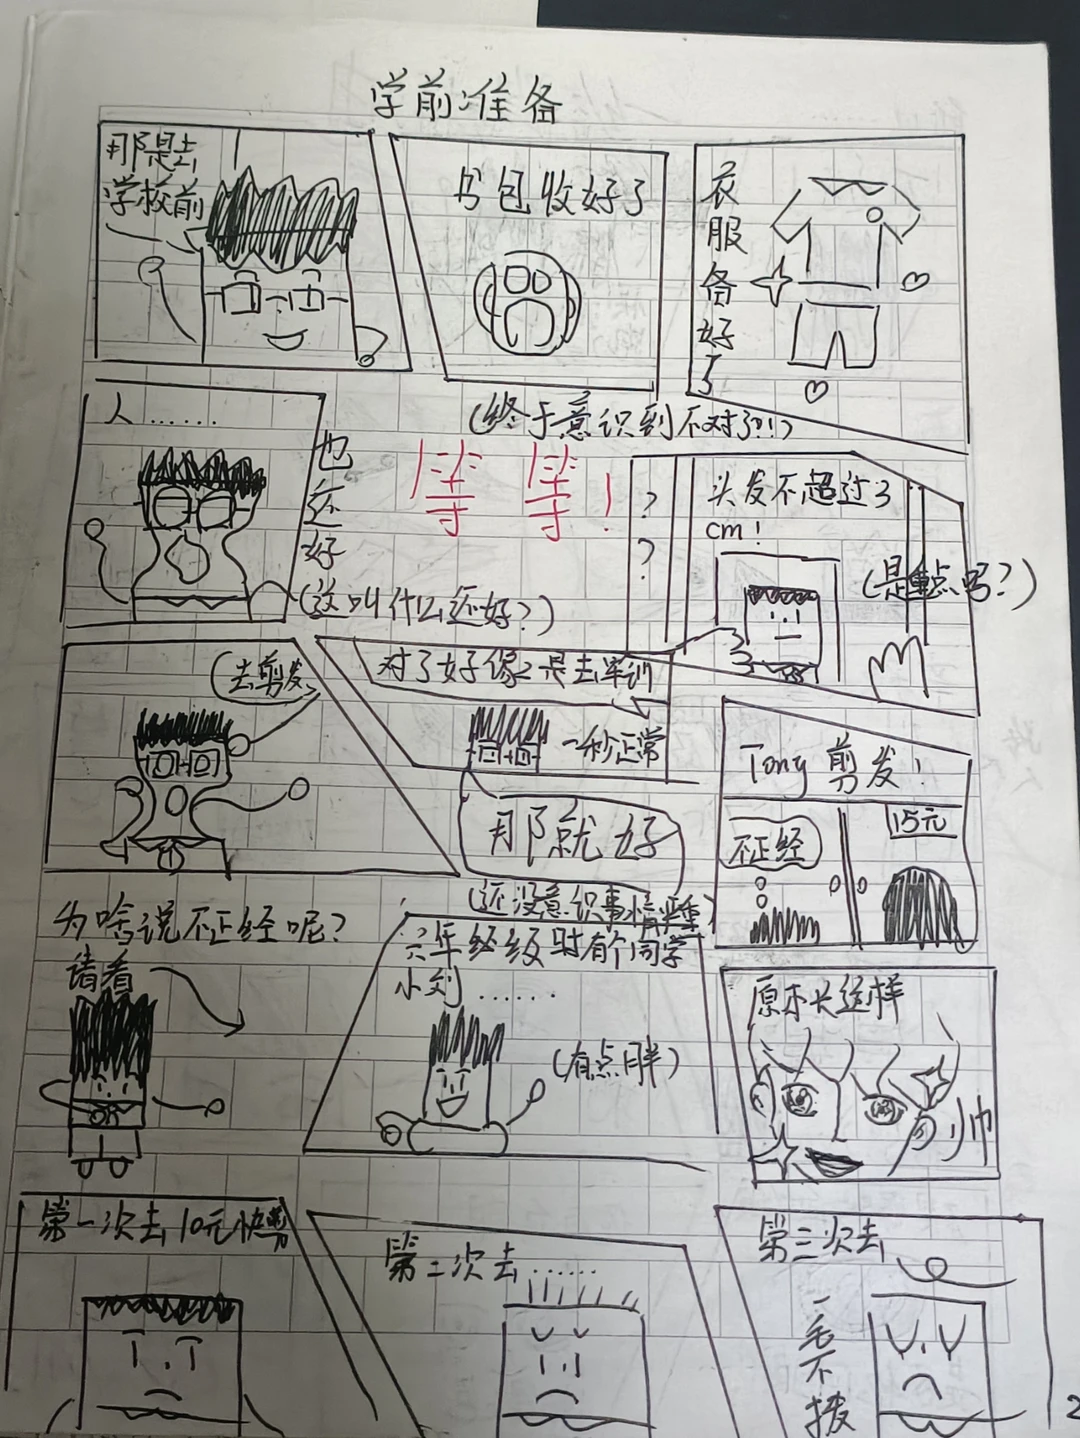 学前准备
那是去
学校前
书包收好了
衣服备好了
人……
也还好
(这叫什么还好?)
(终于意识到不对了?!)
等 等!
?
?
头发不超过3
cm!
(是重点吗?)
(去剪发
对了好像是去军训
一秒正常
那就好
(还没意识事情严重)
Tony 剪发!
不正经
15元
为啥说不正经呢?
请看
六年级时有个同学
小刘……
(有点胖)
原本长这样
帅
第一次去10元快剪
第二次去……
第三次去
一毛不拔
2